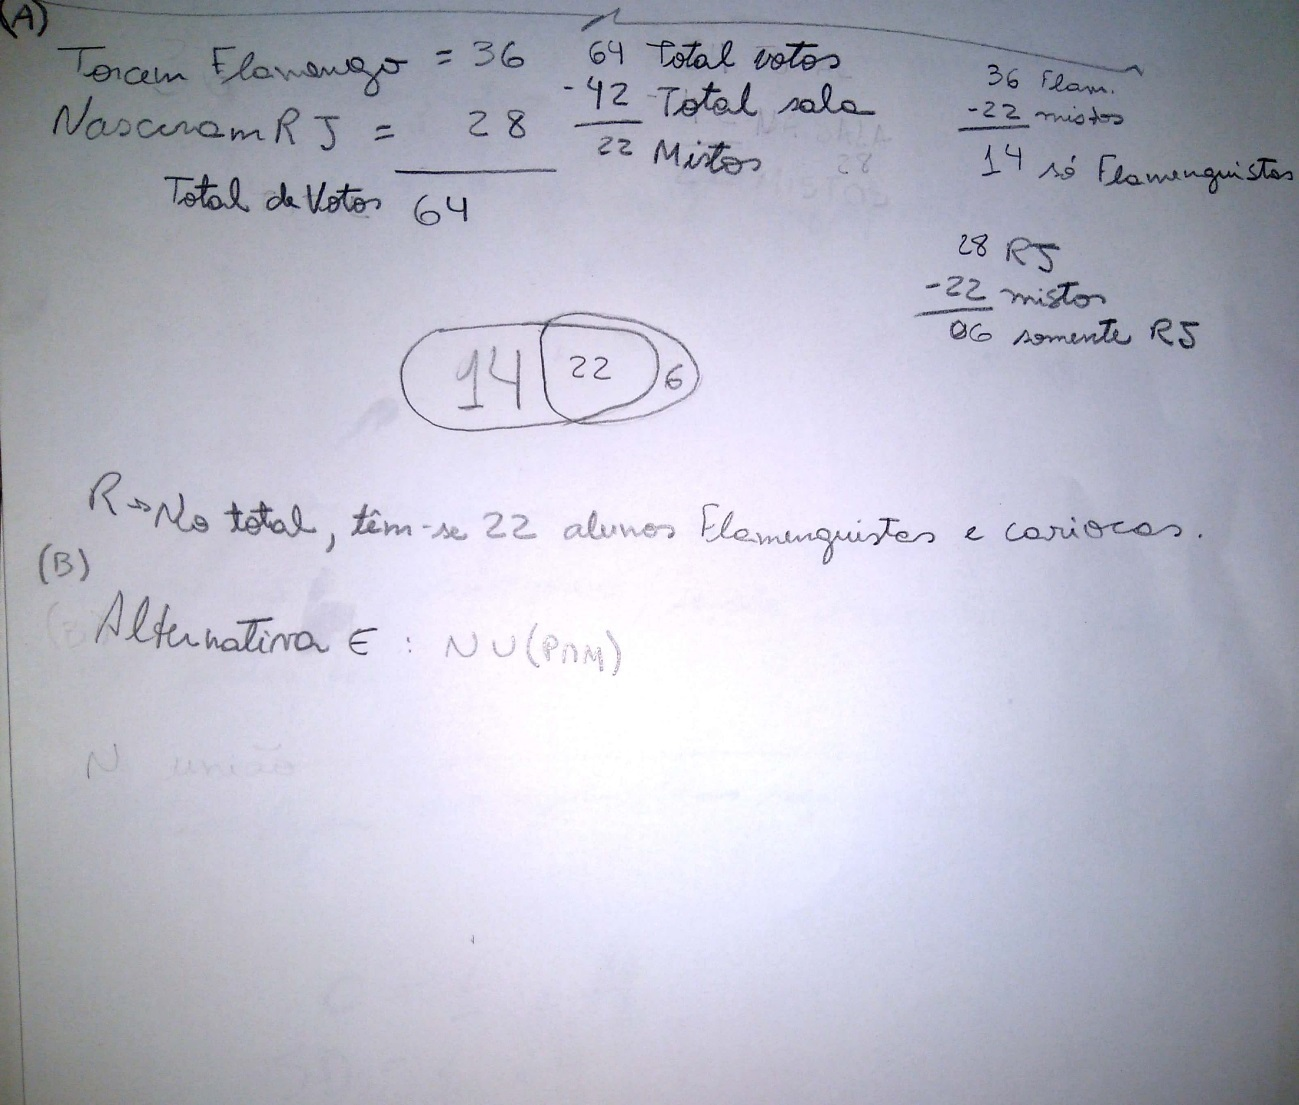 (A)
Torcem Flamengo = 36
Nasceram RJ = 28
Total de Votos 64
64 Total votos
-42 Total sala
22 Mistos
36 Flam.
-22 mistos
14 só Flamenguistas
28 RJ
-22 mistos
06 somente RJ
14 22 6
R→ No total, têm-se 22 alunos Flamenguistas e cariocas.
(B)
Alternativa E : N U (P∩M)
N união